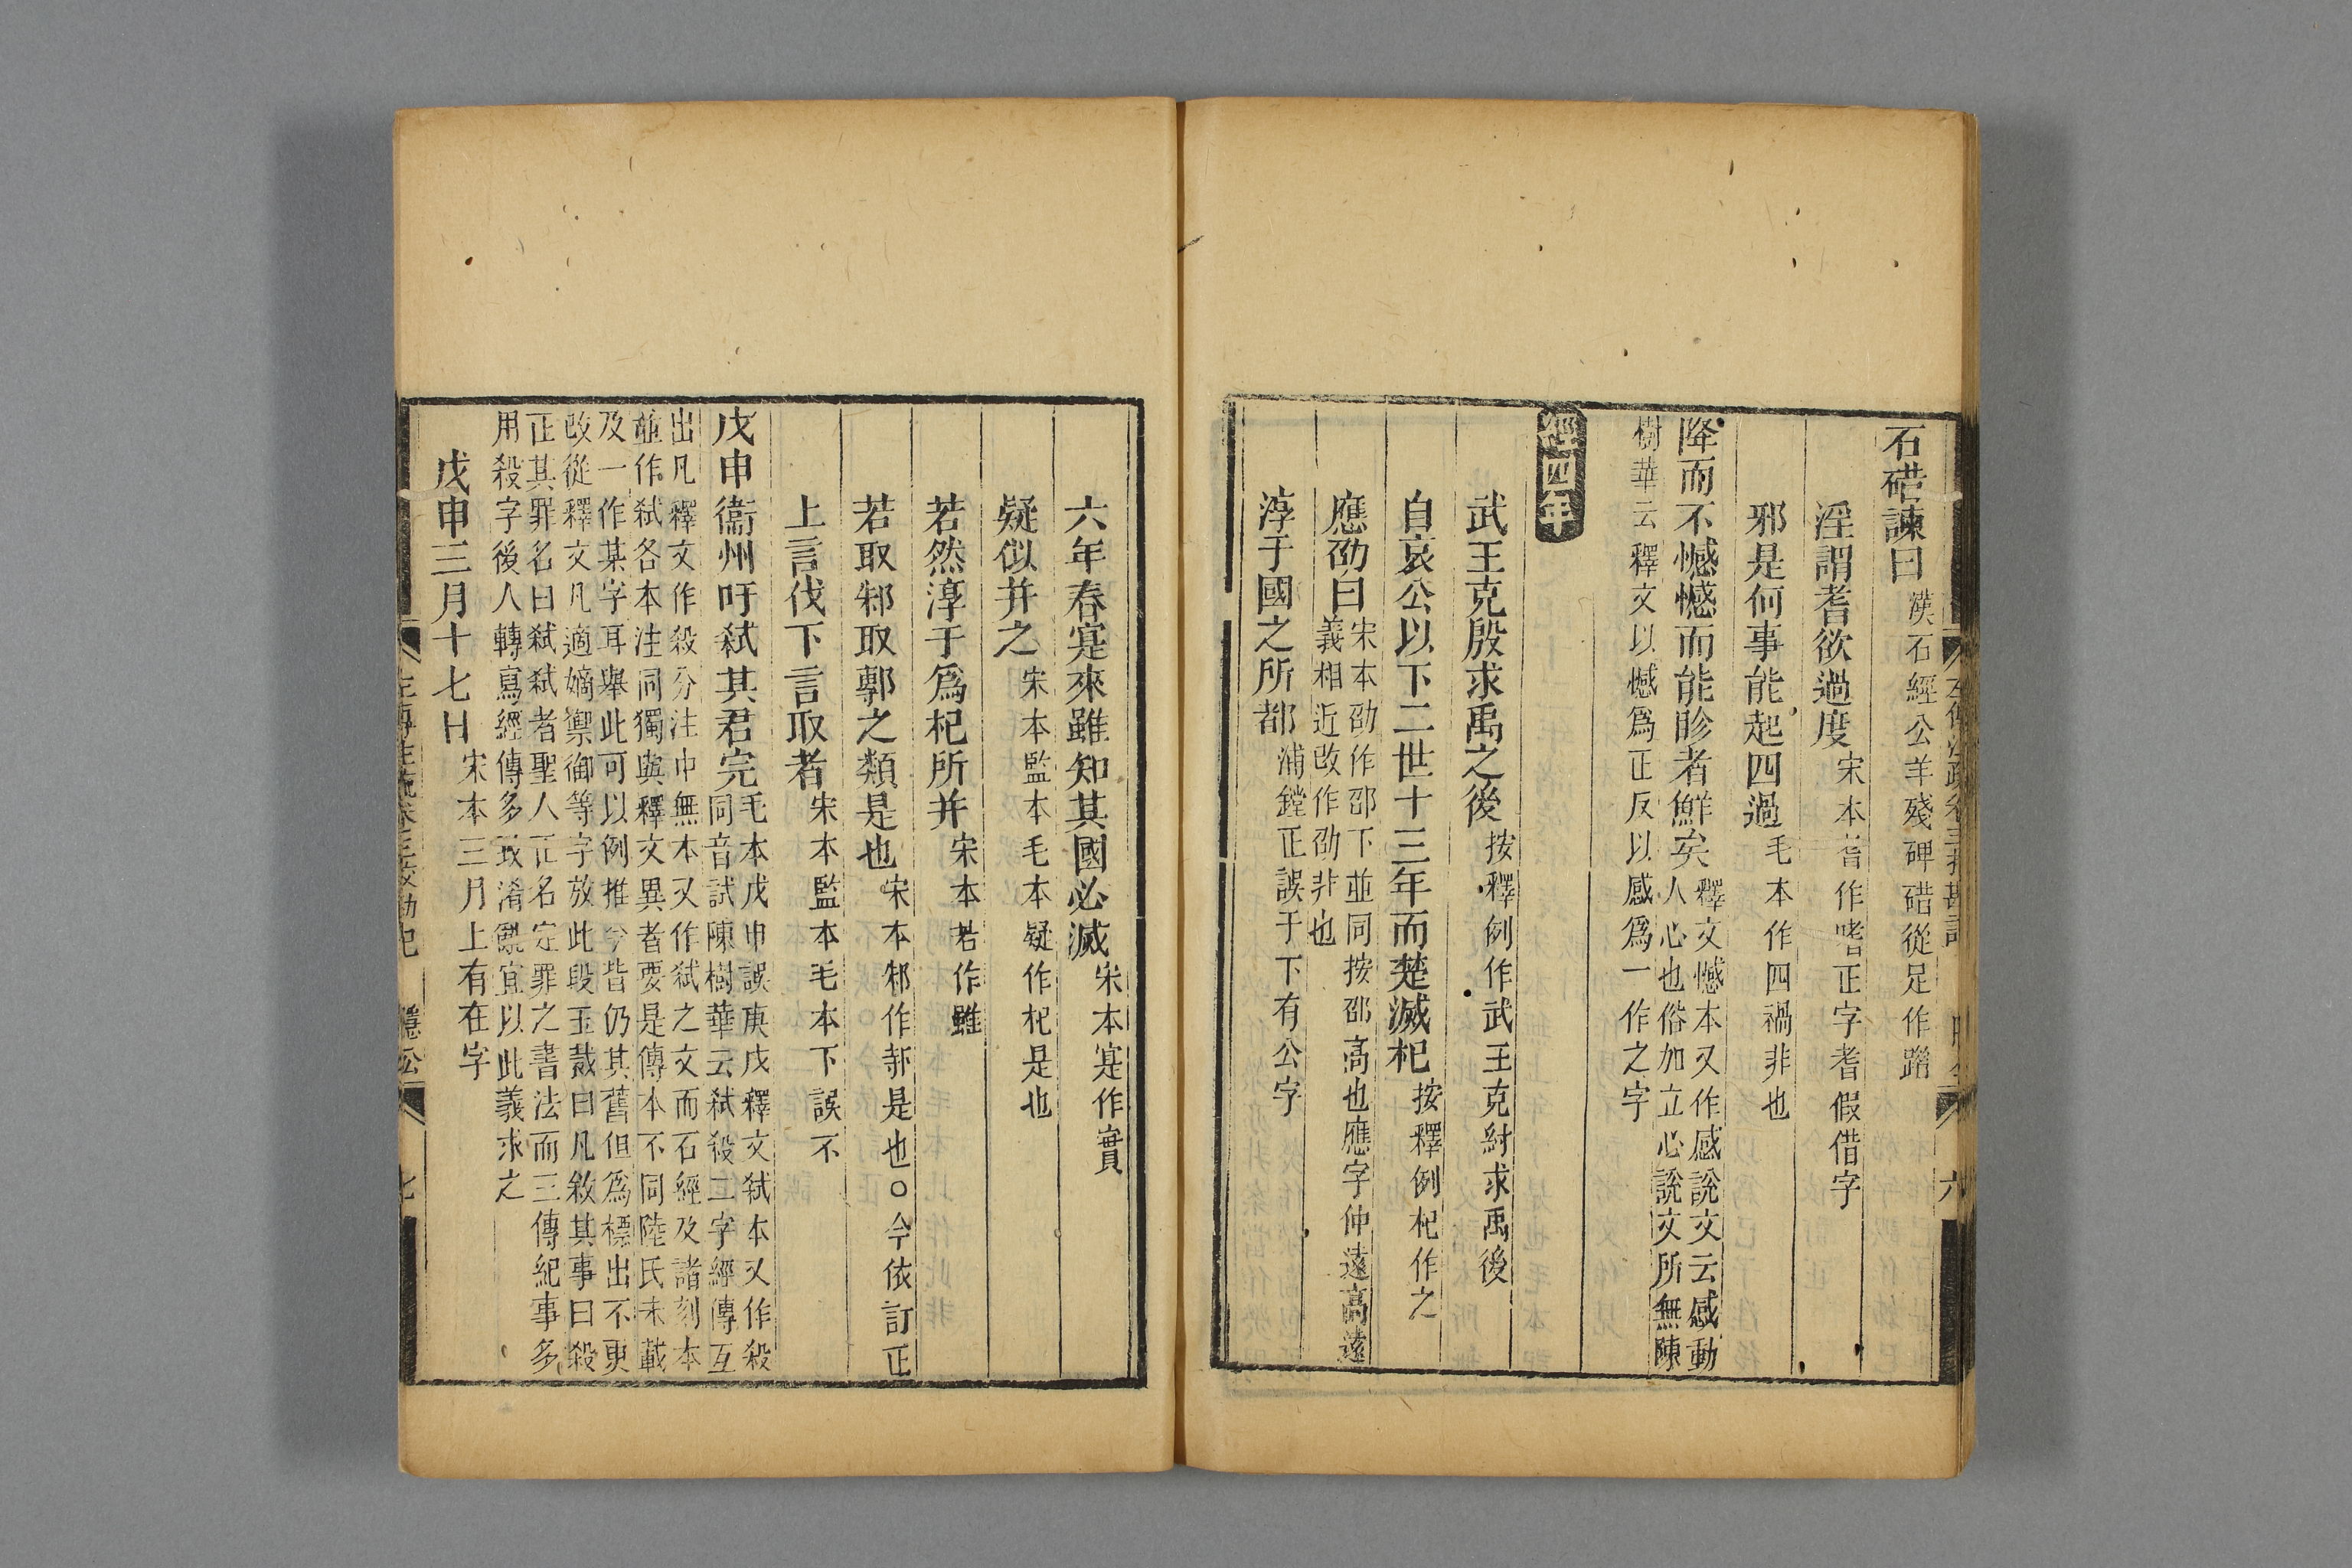 石碏諫曰漢石經公羊殘碑碏從足作踖
淫謂耆欲過度宋本耆作嗜正字耆假借字
邪是何事能起四過毛本作四禍非也
降而不憾憾而能眕者鮮矣釋文憾本又作感說文云感動
人心也俗加立心說文所無陳
樹華云釋文以憾爲正反以感爲一作之字
經四年
武王克殷求禹之後按釋例作武王克紂求禹後
自哀公以下二世十三年而楚滅杞按釋例杞作之
應劭曰宋本劭作卲下並同按卲高也應字仲遠高遠
義相近改作劭非也
淳于國之所都浦鏜正誤于下有公字
六年春寔來雖知其國必滅宋本寔作實
疑似并之宋本監本毛本疑作杞是也
若然淳于爲杞所并宋本若作雖
若取邿取鄟之類是也宋本邿作邿是也○今依訂正
上言伐下言取者宋本監本毛本下誤不
戊申衞州吁弑其君完毛本戊申誤庚戌釋文弑本又作殺
同音試陳樹華云弑殺二字經傳互
出凡釋文作殺分注中無本又作弑之文而石經及諸刻本
並作弑各本注同獨與釋文異者要是傳本不同陸氏未載
及一作某字耳舉此可以例推今皆仍其舊但爲標出不更
改從釋文凡適嫡禦御等字放此段玉裁曰凡敘其事曰殺
正其罪名曰弑弑者聖人正名定罪之書法而三傳紀事多
用殺字後人轉寫經傳多致淆亂宜以此義求之
戊申三月十七日宋本三月上有在字
左傳注疏卷三校勘記 隱公 七
六